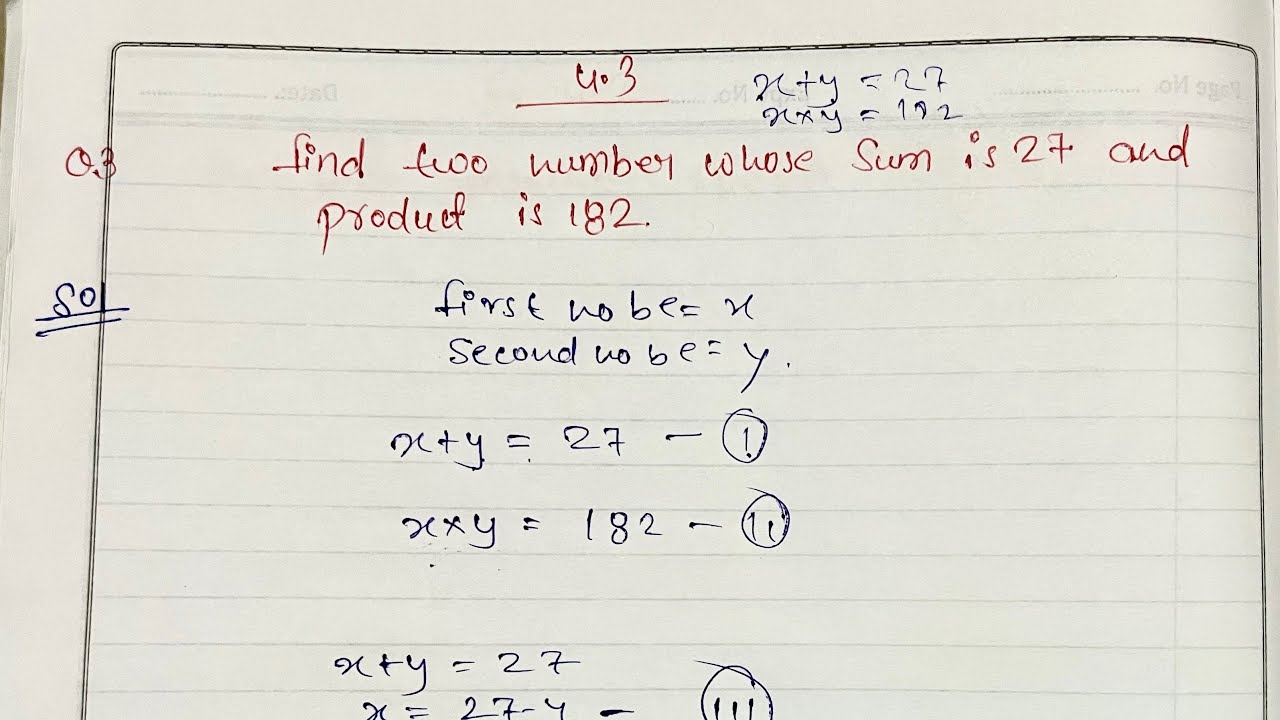 4.3
x+y = 27
x×y = 182
Q.3 find two number whose sum is 27 and
product is 182.
Sol
first no be= x
Second no be= y.
x+y = 27 - (i)
x×y = 182 - (ii)
x+y = 27
x = 27-y - (iii)
Page No.
Date: